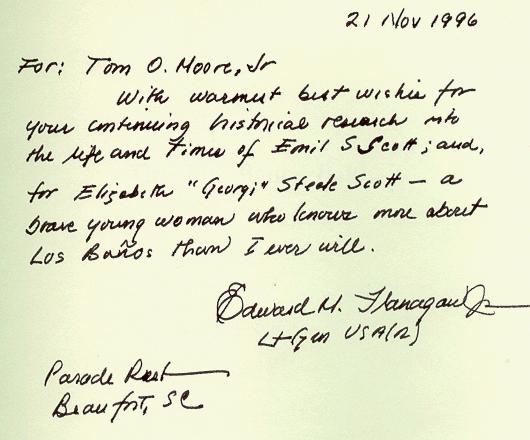 21 Nov 1996
For: Tom O. Moore, Jr
With warmest best wishes for
your continuing historical research into
the life and Times of Emil S Scott; and,
for Elizabeth "Georgi" Steele Scott — a
brave young woman who knows more about
Los Baños than I ever will.
Edward M. Flanagan Jr
Lt Gen USA(R)
Parade Rest
Beaufort, SC